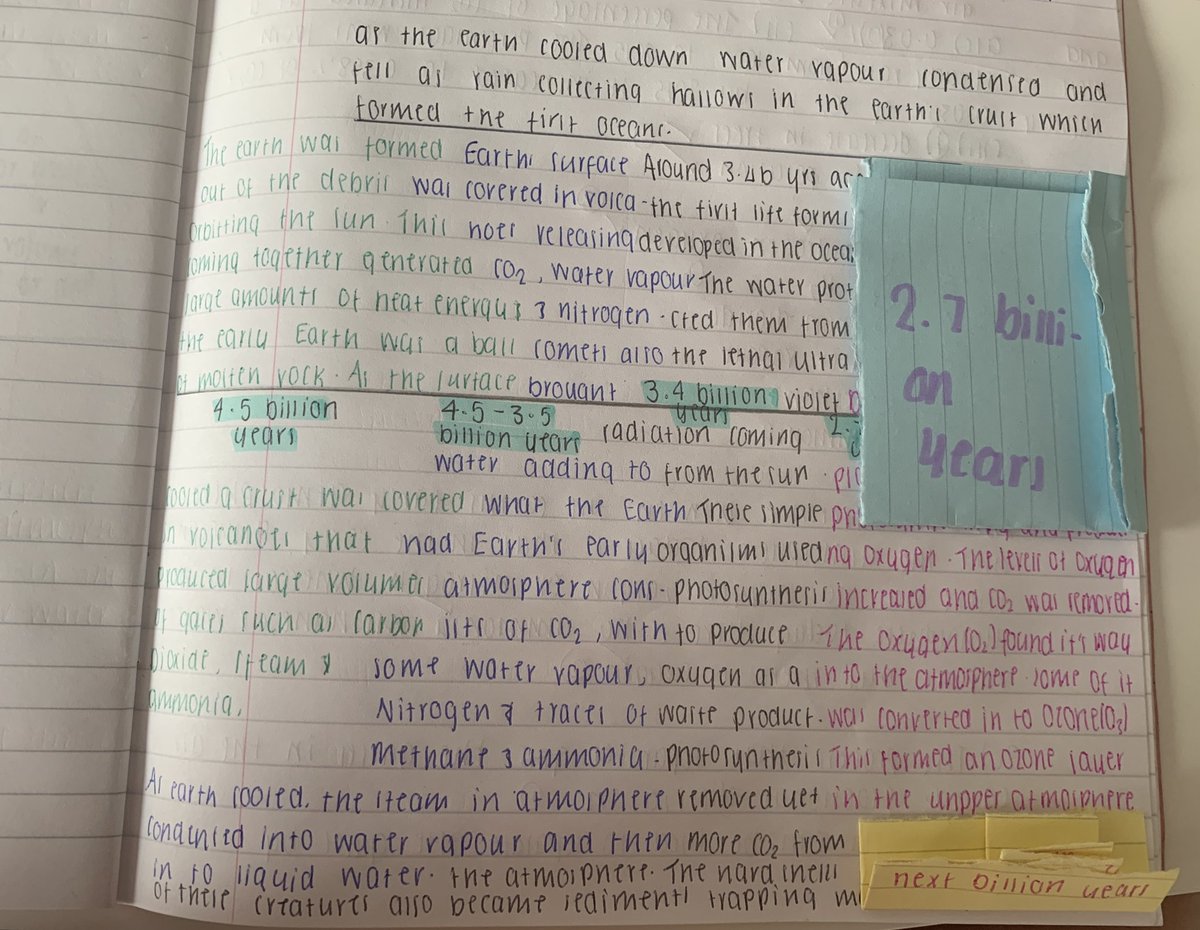 as the earth cooled down water vapour condensed and
fell as rain collecting hallows in the earth's crust which
formed the first oceans.
The earth was formed Earths surface Around 3.4b yrs
out of the debris was covered in volca- the first life forms
orbitting the sun. This noes releasing developed in the
coming together generated CO2, water vapour The water
large amounts of heat energy & & nitrogen. cted them from
the early Earth was a ball comets also the lethal ultra
of molten rock. As the surface brought 3.4 billion violet
years
4.5 billion 4.5-3.5
years billion years radiation coming
water adding to from the sun.
cooled a crust was covered what the Earth These simple
in volcanoes that had Earth's early organisms used ng oxygen. The levels of oxygen
produced large volumes atmosphere cons- photosynthesis increased and CO2 was removed.
of gases such as carbon ists of CO2, with to produce The oxygen (O2) found it's way
Dioxide, steam & some water vapour, oxygen as a in to the atmosphere. some of it
ammonia. Nitrogen & traces of waste product. was converted in to Ozone(O3)
Methane & ammonia. photosynthesis This formed an ozone layer
As earth cooled, the steam in atmosphere removed yet in the unpper atmosphere
condensed into water vapour and then more CO2 from
in to liquid water. the atmosphere. The hard
of these creatures also became sediments trapping
2.7 billi-
on
years
next billion years